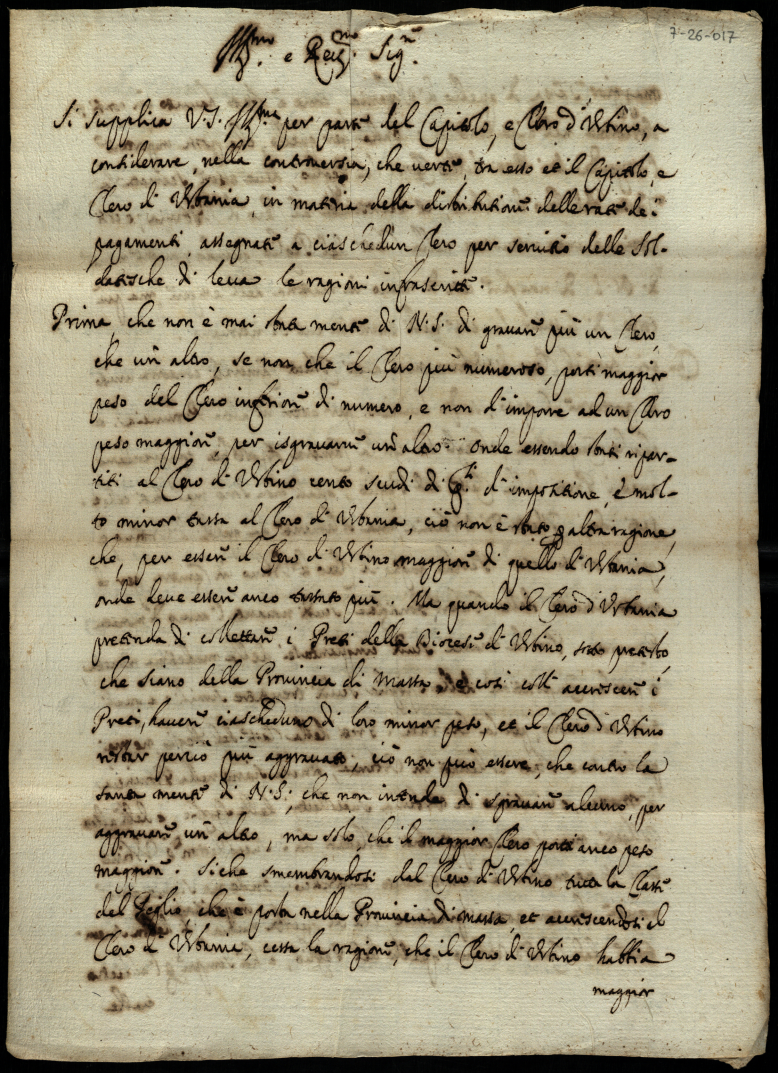 7-26-017
Ill.mo e Rev.mo Sig.r
Si supplica V.S. Ill.ma per parte del Capitolo, e Clero d'Urbino, a
considerare, nella controversia, che verte, tra esso et il Capitolo, e
Clero di Urbania, in materia della distributione delle rate de i
pagamenti assegnati a ciaschedun Clero per servitio delle Sol-
datesche di leva le ragioni infrascritte.
Prima, che non è mai stata mente di N.S. di gravare più un Clero,
che un altro, se non che il Clero più numeroso, porti maggior
peso del Clero inferiore di numero, e non d'imporre ad un Clero
peso maggiore, per isgravarne un altro. Onde essendo stati ripar-
titi al Clero di Urbino cento scudi di d'impositione, e mol-
to minor tassa al Clero di Urbania, ciò non è stato altra ragione,
che, per essere il Clero di Urbino maggiore di quello d'Urbania,
onde deve essere anco tassato più. Ma quando il Clero d'Urbania
pretenda di collettare i Preti della Diocesi d'Urbino, sotto pretesto,
che siano della Provincia di Massa, e così coll' accrescere i
Preti, havere ciascheduno di loro minor peso, et il Clero d'Urbino
restar perciò più aggravato, ciò non può essere, che contro la
santa mente di N.S., che non intende di sgravare alcuno, per
aggravare un altro, ma solo, che il maggior Clero porti anco peso
maggiore. Si che smembrandosi dal Clero d'Urbino tutta la Parte
del , che è posta nella Provincia di Massa, et accrescendosi il
Clero di Urbania, cessa la ragione, che il Clero d'Urbino habbia
maggior